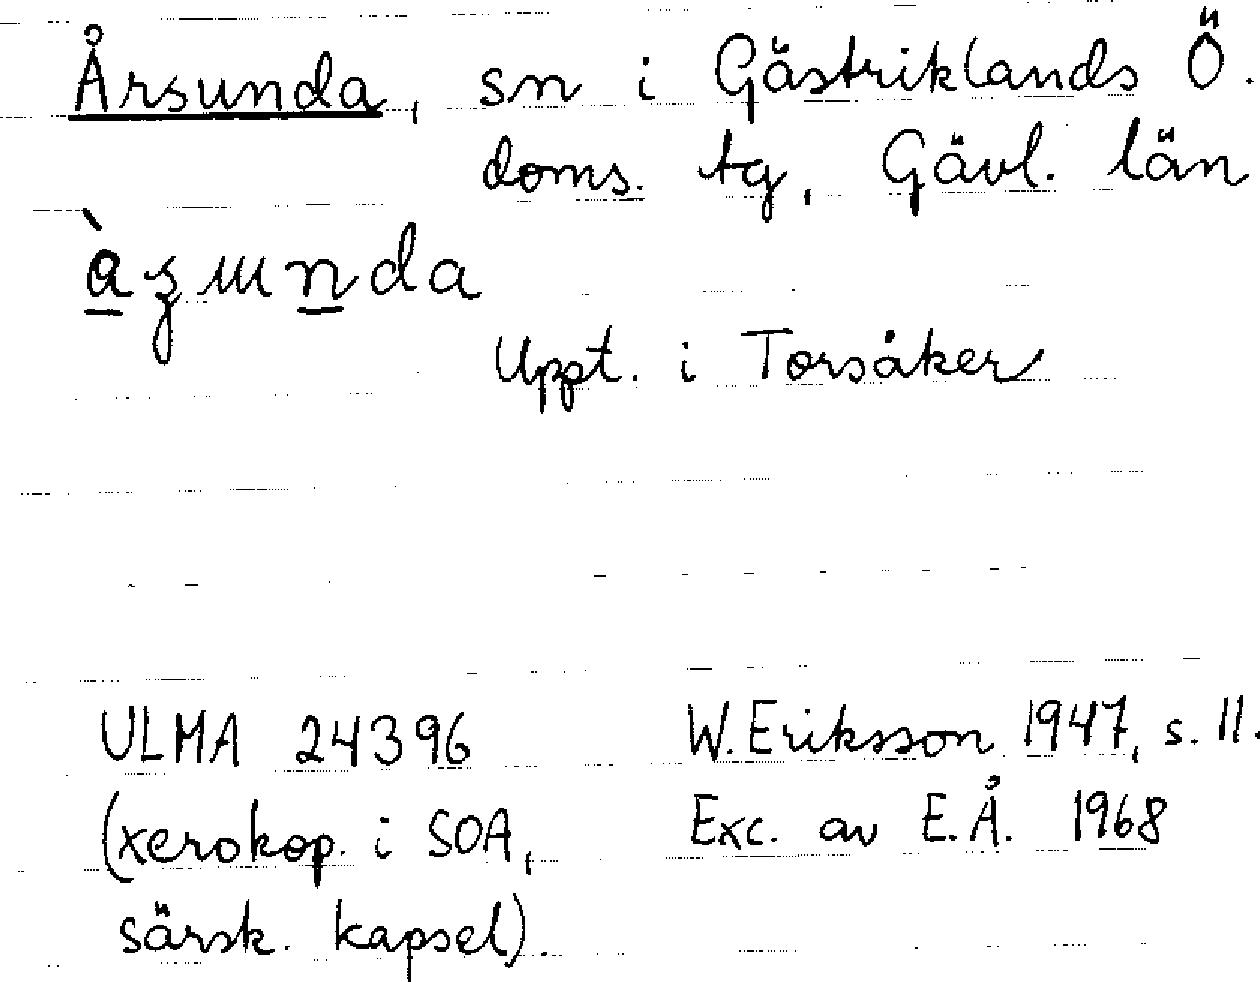 Årsunda, sn i Gästriklands Ö.
doms. tg, Gävl. län
Uppt. i Torsåker
ULMA 24396 W. Eriksson 1947, s. 11.
(xerokop. i SOA, Exc. av E.Å. 1968
särsk. kapsel).